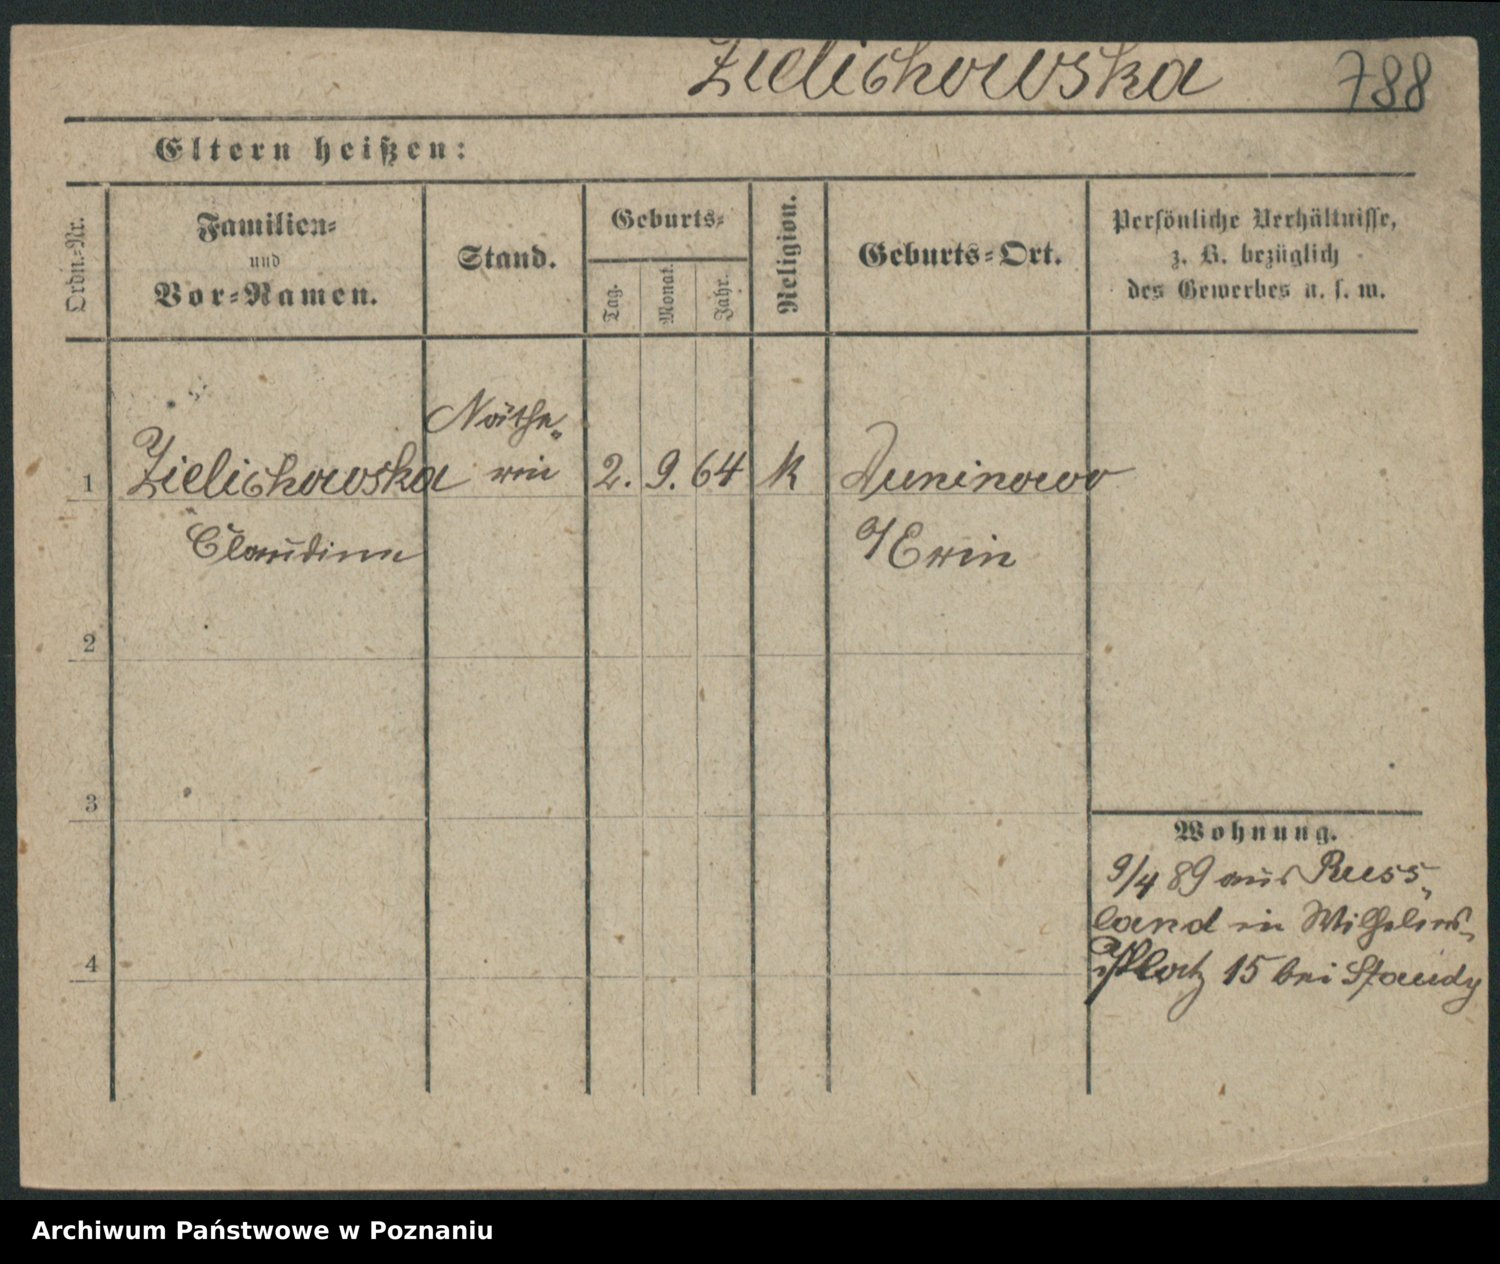 Zielichowska 788
Eltern heißen:
Ordn.-Nr.
Familien-
und
Vor-Namen.
Stand.
Geburts-
Tag.
Monat.
Jahr.
Religion.
Geburts-Ort.
Persönliche Verhältnisse,
z. B. bezüglich
des Gewerbes u. s. w.
Näthe„
1 Zielichowska rin 2. 9. 64 k Duninowo
Claudine
2
3
4
Wohnung.
9/4 89 aus Russ„
land in Wilhelms„
Platz 15 bei
Archiwum Państwowe w Poznaniu